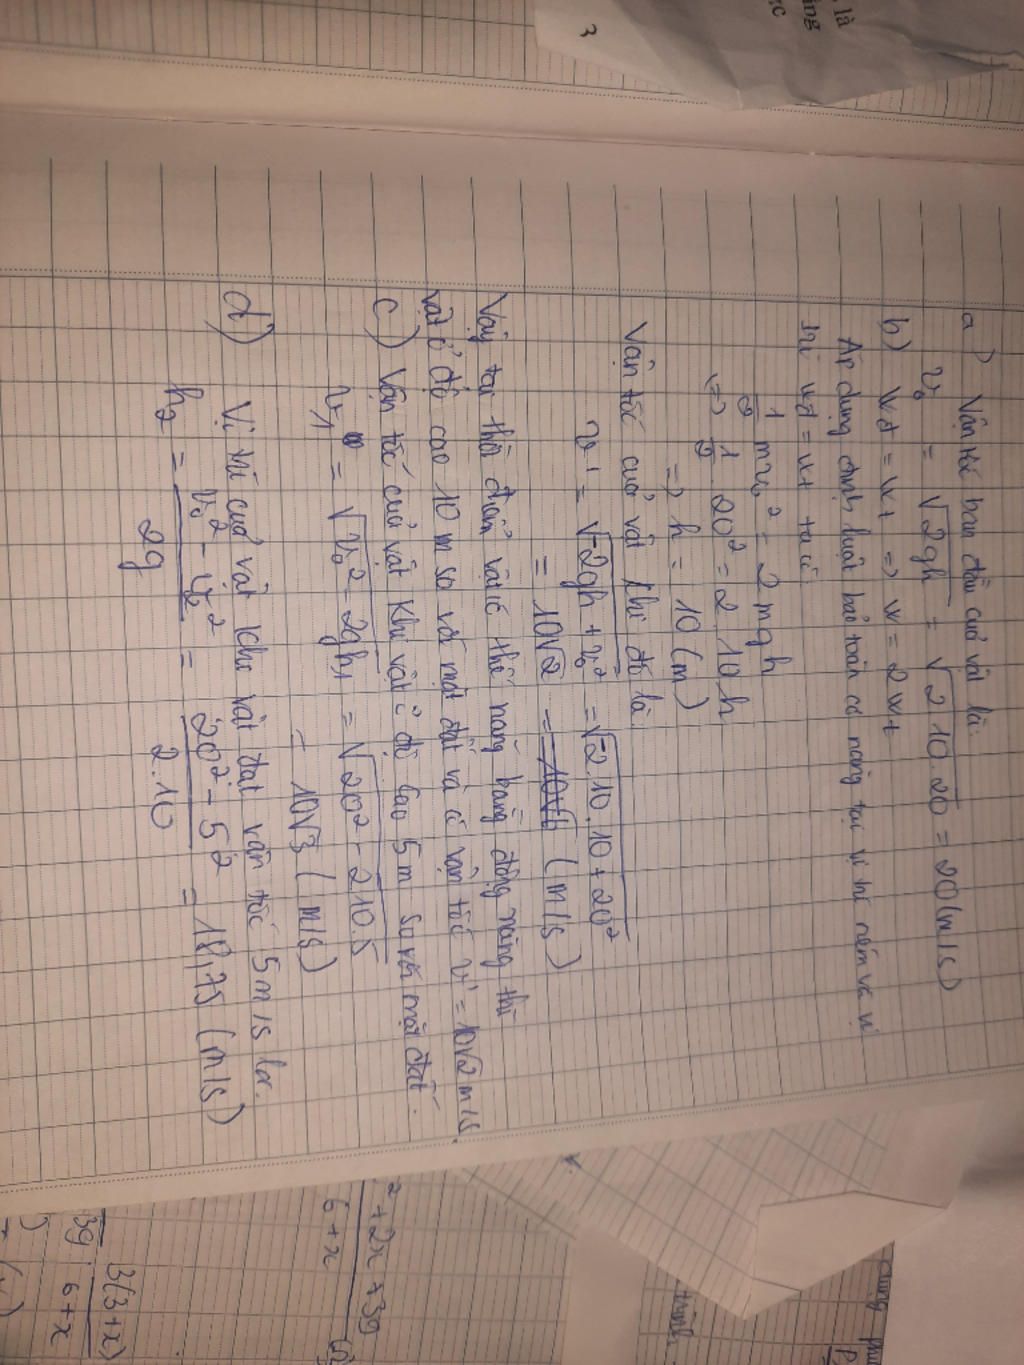 a) Vận tốc ban đầu của vật là:
v₀ = √2gh = √2.10.20 = 20(m/s)
b) Wđ = Wt => W = 2Wt
Áp dụng định luật bảo toàn cơ năng tại vị trí ném và vị
trí Wđ = Wt ta có
1/2 mv₀² = 2mgh
<=> 1/2 20² = 2 10h
=> h = 10 (m)
Vận tốc của vật khi đó là
v' = √-2gh + v₀² = √-2.10.10 + 20²
= 10√2 (m/s)
Vậy tại thời điểm vật có thế năng bằng động năng thì
vật ở độ cao 10 m so với mặt đất và có vận tốc v' = 10√2 m/s.
c) Vận tốc của vật khi vật ở độ cao 5m so với mặt đất.
v₁ = √v₀² - 2gh₁ = √20² - 2 10.5
= 10√3 (m/s)
d) Vị trí của vật khi vật đạt vận tốc 5m/s là.
h₂ = v₀² - v₂² / 2g = 20² - 5² / 2.10 = 18,75 (m/s)
3
là
ằng
² + 2x + 39
6 + x
3(3+x)
6 + x
39
trình